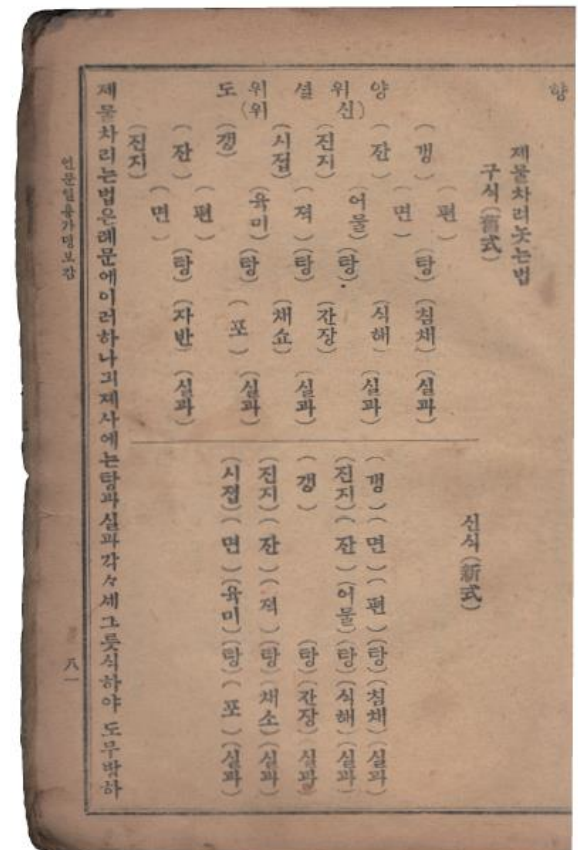 향
제물차려놋는법
구식(舊式)
양위(신위)셜위도
(편)
(갱) (탕) (침채) (실과)
(면)
(잔) (식해) (실과)
(어물) (탕)
(진지) (간장)
(져) (탕) (실과)
(시접) (채쇼)
(육미) (탕) (실과)
(포)
(갱)
(편)
(잔) (탕) (자반) (실과)
(면)
(진지)
신식(新式)
(갱)(면)(편)(탕)(침채)(실과)
(진지)(잔)(어물)(탕)(식해)(실과)
(갱) (탕)(간장)(실과)
(진지)(잔)(적)(탕)(채소)(실과)
(시졉)(면)(육미)(탕)(포)(실과)
제물차리는법은례문에이러하나긔제사에는탕과실과각々세그릇식하야 도무방하
언문일용가뎡보감
八一